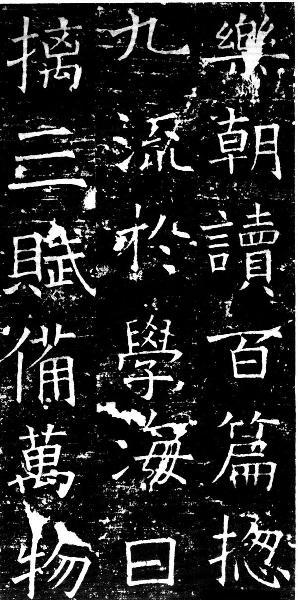 樂朝讀百篇揔
九流於學海日
摛三賦備萬物